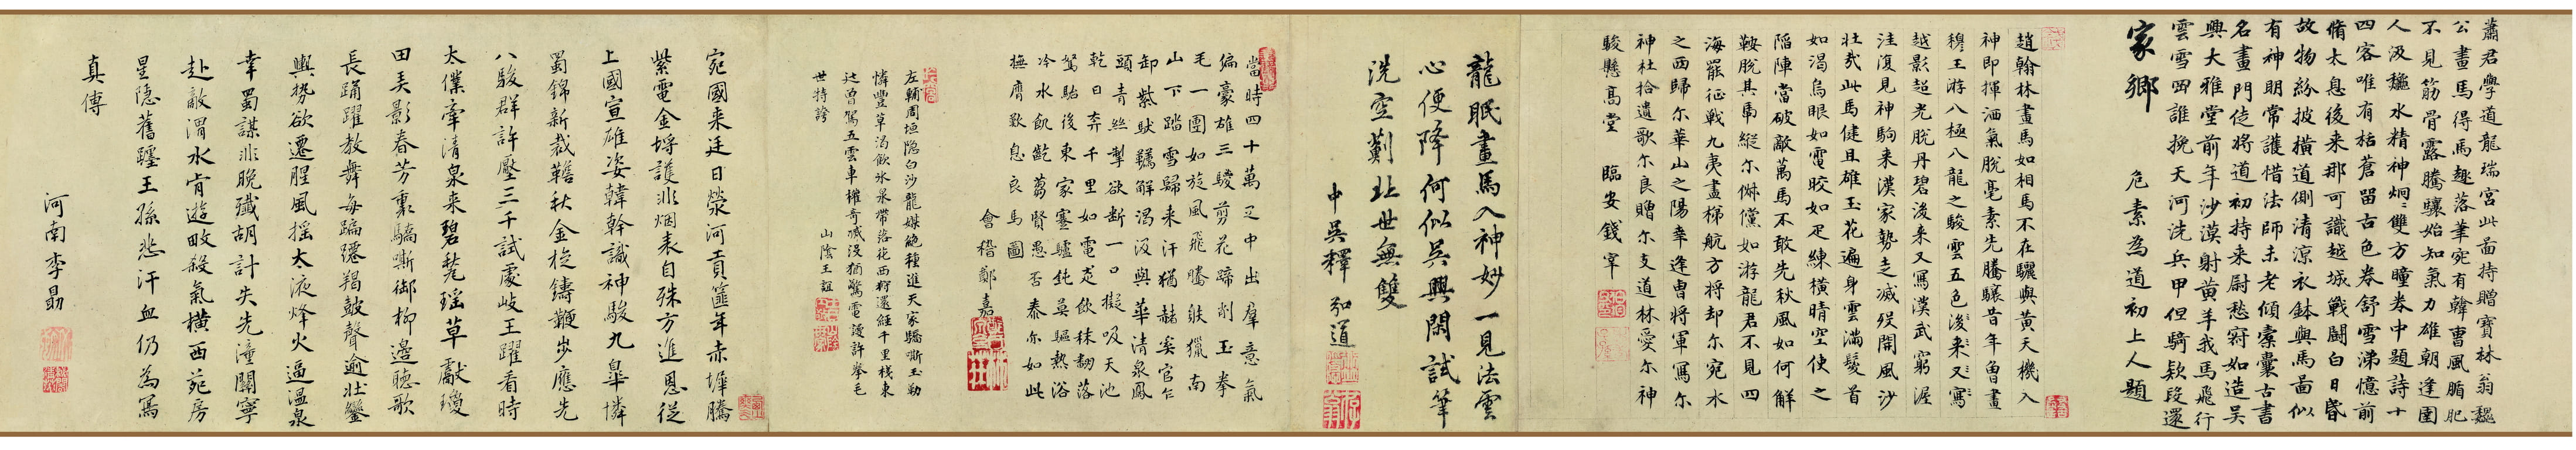 蕭君學道龍瑞宮此啚持贈寶林翁魏
公畫馬得馬趣落筆宛有韓曹風腯肥
不見筋骨露騰驤始知氣力雄朝逢圉
人汲龝水精神炯〻雙方瞳卷中題詩十
四客唯有栝蒼留古色卷舒雪涕憶前
脩太息後来那可識越城戰鬪白日昏
故物紛披橫道側清涼衣鉢與馬啚似
有神明常護惜法師未老傾橐囊古書
名畫門徒將道初持来尉愁寂如造吴
興大雅堂前年沙漠射黃羊我馬飛行
雲雪罒誰挽天河洗兵甲但騎欵段還
家鄉 危素為道初上人題
趙翰林畫馬如相馬不在驪與黃天機入
神即揮洒氣脫毫素先騰驤昔年曾畫
穆王游八極八龍之駿雲五色後来又寫
越影超光脫丹碧後来又寫漢武窮渥
洼復見神駒来漢家勢走滅沒開風沙
壮㢤此馬健且雄玉花遍身雲滿鬉首
如渴烏眼如電皎如疋練横晴空使之
陷陣當破敵萬馬不敢先秋風如何解
鞍脫其馬縱尓倜儻如游龍君不見四
海罷征戰九夷盡梯航方将却尓宛水
之西歸尓華山之陽幸逢曹將軍寫尓
神杜拾遺歌尓良贈尓支道林愛尓神
駿懸高堂 臨安錢宰
龍眠畫馬入神妙一見法雲
心便降何似吴興閑試筆
洗空萬䣊北世無雙
中吴釋 弘道
當時四十萬疋中出羣意氣
偏豪雄三騣剪花蹄削玉拳
毛一團如旋風飛騰躞獵南
山下踏雪歸来汗猶赭奚官乍
卸紫䭾韉解渴汲與華清泉鳳
頭青絲掣欲断一口擬吸天池
乾日奔千里如電走飲秣芻落
駑駘後東家蹇驢鈍莫驅熱浴
冷水飢齕蒭賢愚否泰亦如此
撫膺歎息良馬圖
會稽鄭嘉
左輔周垣隐白沙龍媒絶種進天家驕嘶玉勒
憐豐草渴飲氷泉帶落花西狩還經千里棧東
迁曽駕五雲車權奇滅沒猶驚電謾許拳毛
世特誇
山陰王誼
宛國来廷日滎河貢篚年赤墀騰
紫電金埒護非烟表自殊方進恩從
上國宣雄姿韓幹識神駿九臯憐
蜀錦新裁韂秋金旋鑄鞭步應先
八駿群許壓三千試處岐王躍看時
太僕牽清泉来碧甃瑶草獻瓊
田美影春芳裏驕嘶御柳邊聴歌
長踊躍教舞每蹁躚羯皷聲逾壮鑾
輿勢欲遷腥風揺太液烽火逼温泉
幸蜀謀非晚殱胡計失先潼關寧
赴敵渭水肯遊畋殺氣横西苑房
星隐舊躔王孫悲汗血仍為寫
真傳
河南李勗